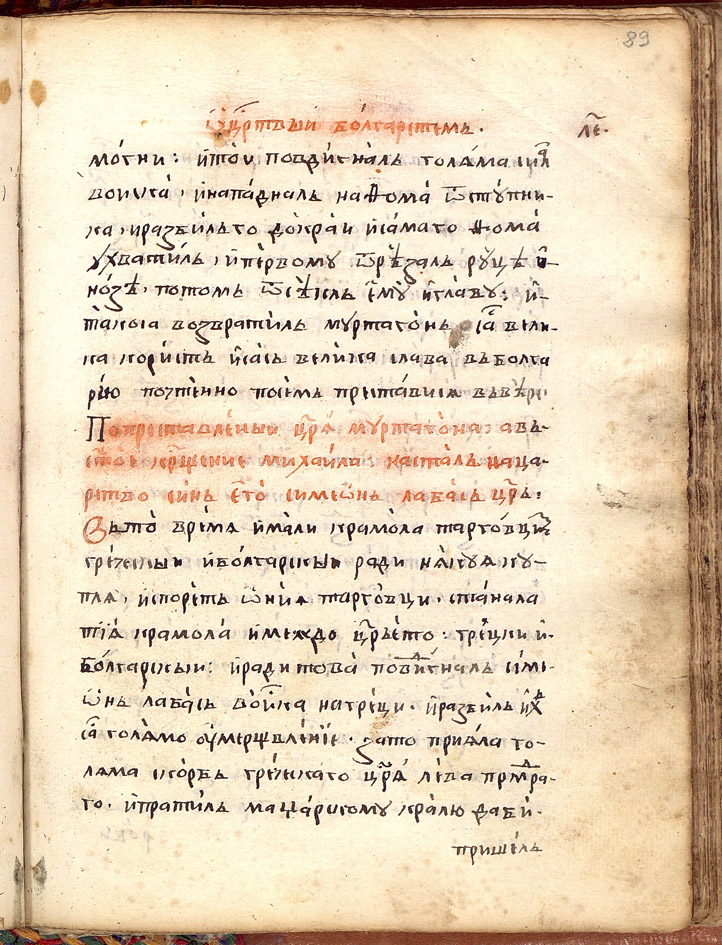 89
Ѡ црⷭ҇твыи болгарстемъ. л҃е.
могни: и тоѝ повдигналъ голѧма сила
воиска, и нападналъ на Ѳома ѿстꙋпни-
ка, и разбилъ го докраи и самаго Ѳома
ухватилъ, и первому ѿрѣзалъ рꙋцѣ и
нозѣ, потомъ ѿсѣклъ емꙋ и главꙋ: и
такоіа возвратилъ муртагонъ са вели-
ка користь и сась велика слава въ болга
рїю почтенно посемъ преставися въ вѣре
По преставленыи црѧ муртагона: а въ
стое крщение михаила: насталъ на ца-
рство синъ его симеѡнъ лабасъ црь:
Въ то времѧ имали крамола тарговци
греческыи и болгарскыи ради нѧкуѧ ку-
плѧ, и спореть ѡниѧ тарговци. станала
тїѧ крамола и между црьето: грецки и
болгарскыи: и ради това повдигналъ сими-
ѡнъ лабасъ воиска на греци. и разбилъ их
са голѧмо ᲂумерщвленїе. зато приѧла го-
лѧма скорбъ греческаго црѧ лева прмдра-
го. и пратилъ маџарскому кралю да би
пришелъ